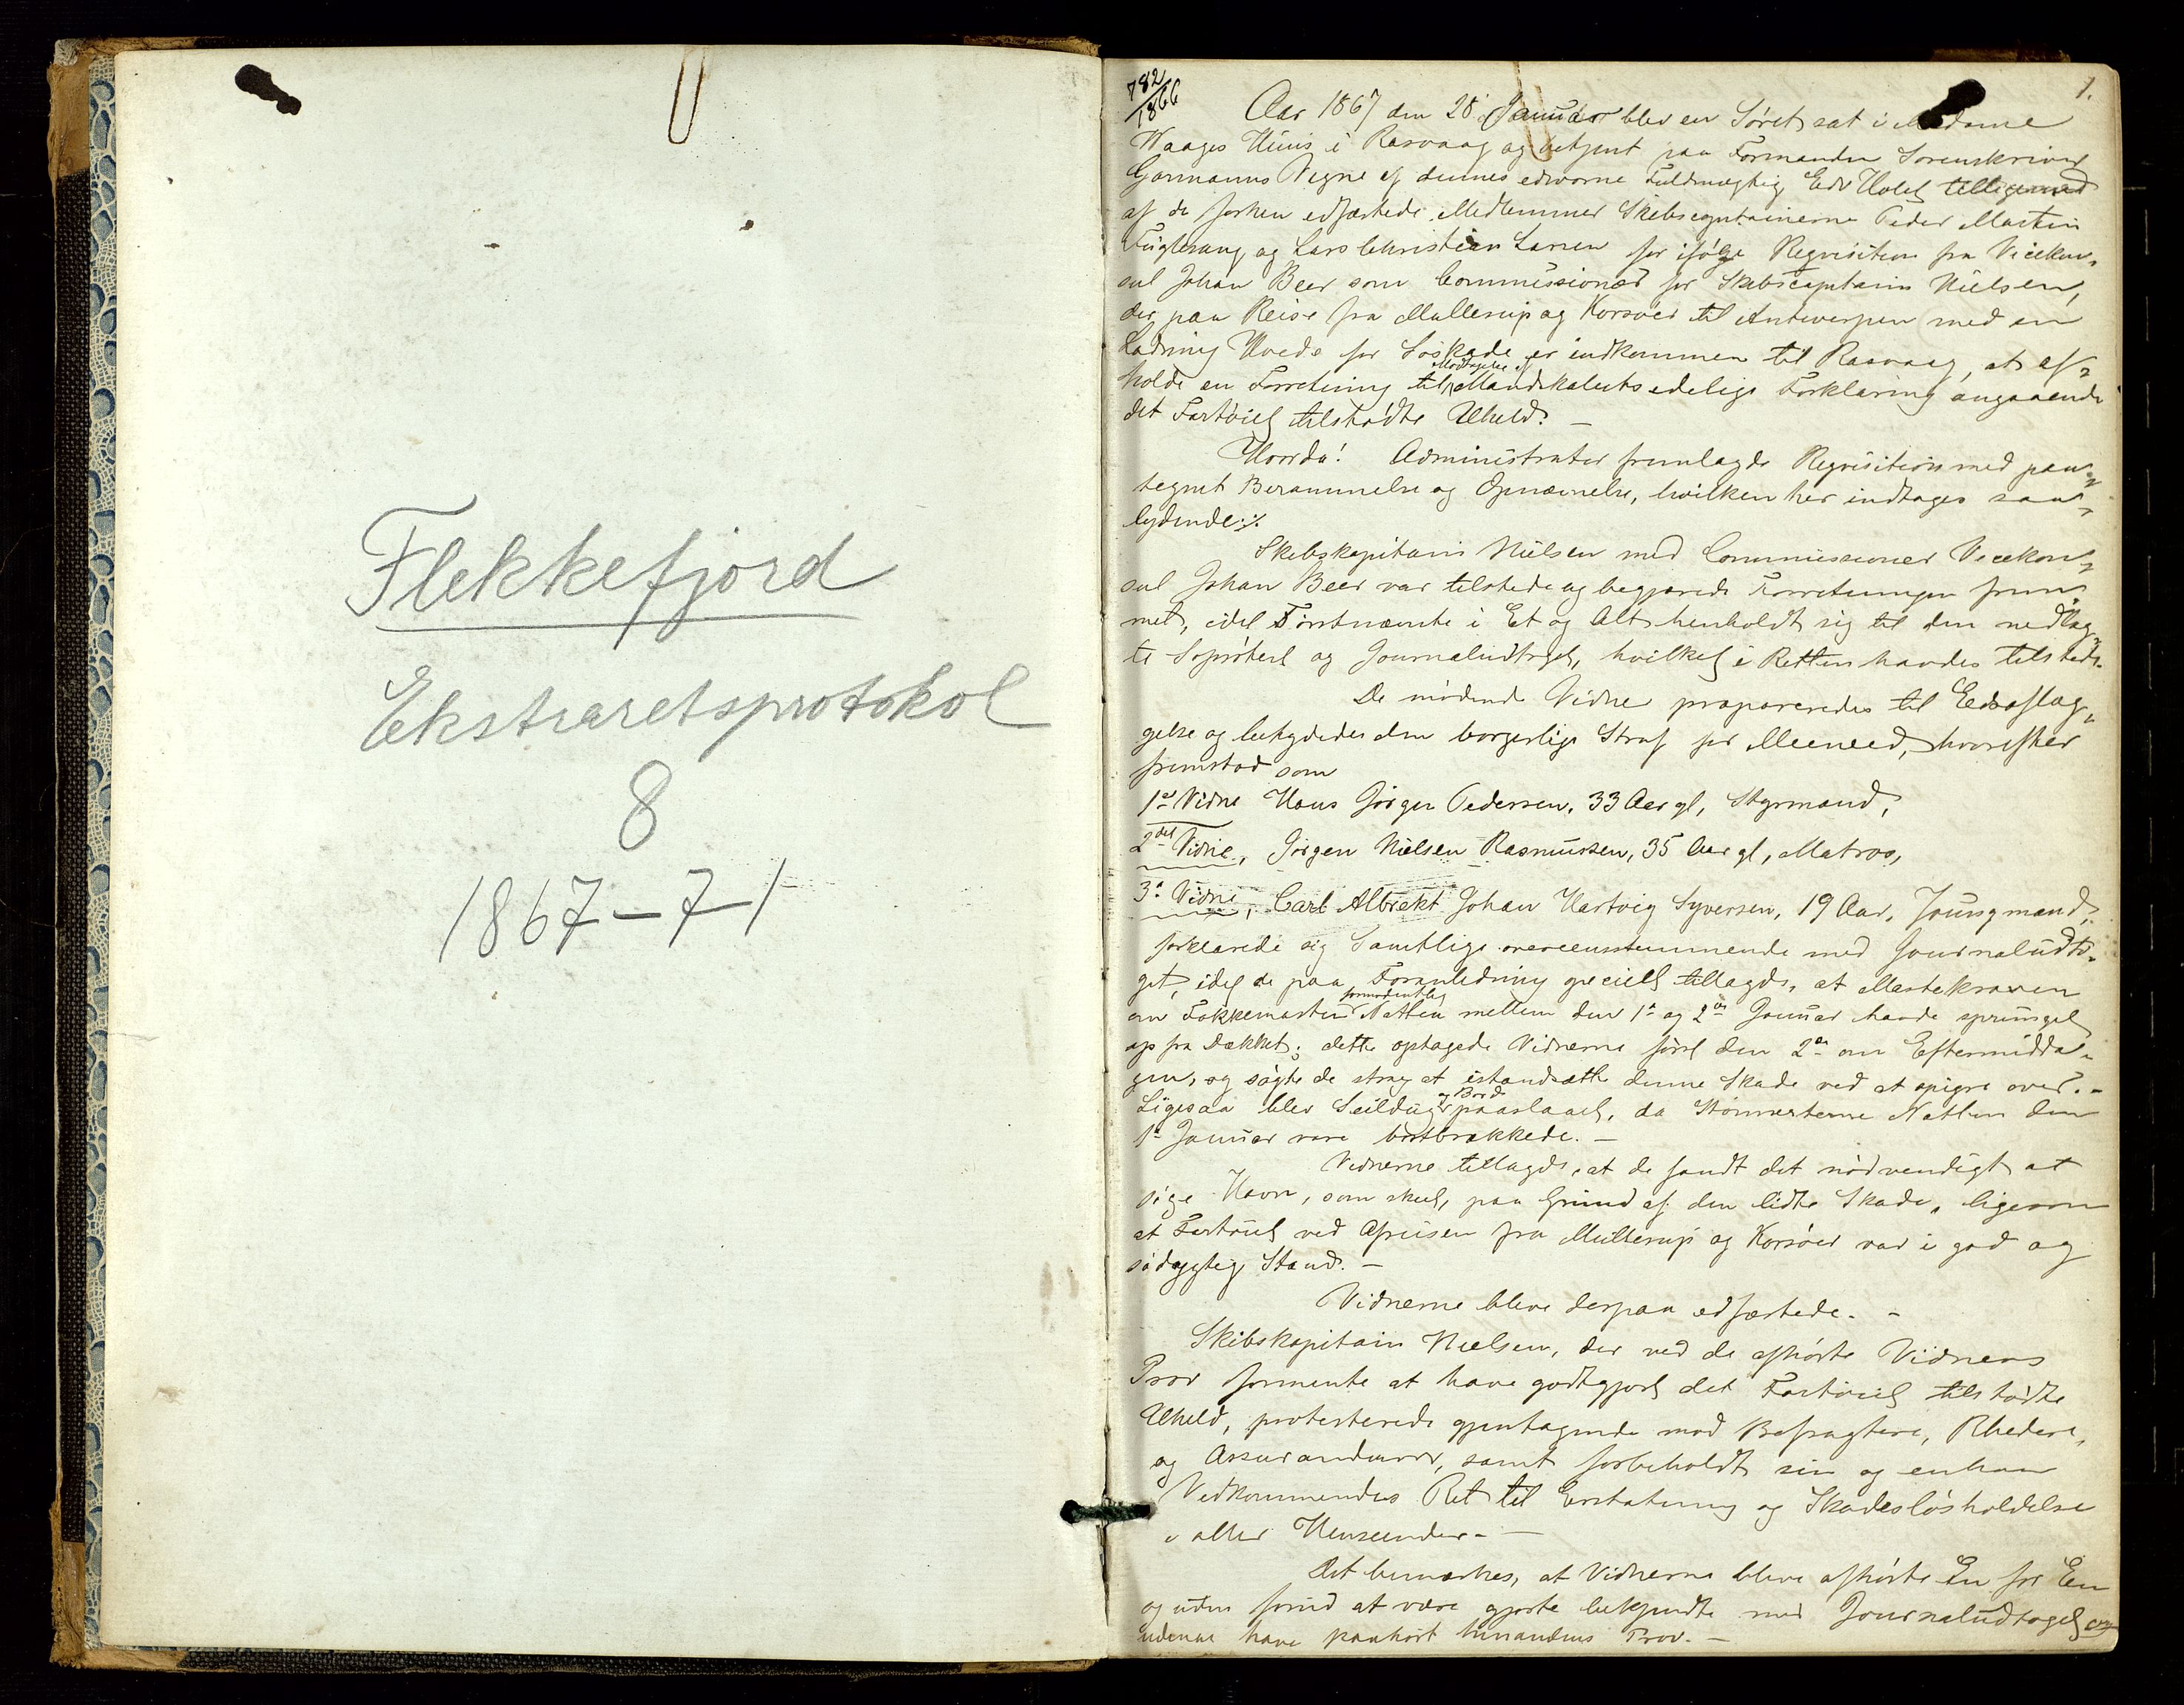 Flekkefjord
Ekstraretsprotokol
8
1867-71
1.
782/1866
Aar 1867 den 28 Januar blev en Søret sat i Madame
Waages Huus i Rasvaag og betjent paa Formanden Sorenskriver
Garmanns Vegne af dennes edsvorne Fuldmægtig Edv Holst tilligemed
af de forhen edfæstede Medlemmer Skibscaptainerne Peder Martin
Fuglevaag og Lars Christian Larsen for ifølge Reqvisition fra Vicekon-
sul Johan Beer som Commissionær for Skibscaptain Nielsen,
der paa Reise fra Mullerup og Korsøer til Antwerpen med en
Ladning Hvede for Søskade er indkommen til Rasvaag, at af-
holde en Forretning til Modtagelse af Mandskabets edelige Forklaring angaaende
det Fartøiet tilstødte Uheld. —
Hvorda! Administrator fremlagde Reqvisition med paa-
tegnet Berammelse og Opnævnelse, hvilken her indtages saa-
lydende:/.
Skibskapitain Nielsen med Commissionær Vicekon-
sul Johan Beer var tilstede og begjærede Forretningen frem-
met, idet Førstnævnte i Et og Alt henholdt sig til den nedlag-
te Søprotest og Journaludtoget, hvilket i Retten havdes tilstede.
De mødende Vidne præpareredes til Eedsaflæg-
gelse og betydedes den borgerlige Straf for Meeneed, hvorefter
fremstod som
1ste Vidne Hans Jørgen Pedersen, 33 Aar gl, Styrmand,
2det Vidne, Jørgen Nielsen Rasmussen, 35 Aar gl, Matros,
3die Vidne, Carl Albrekt Johan Hartvig Syversen, 19 Aar, Joungmand,
forklarede sig Samtlige overeensstemmende med Journaludto-
get, idet de paa Foranledning specielt tillagde, at Mastekraven
om Fokkemasten formodentlig Natten mellem den 1ste og 2den Januar havde sprunget
op fra Dækket; dette optagede Vidnerne først den 2den om Eftermidda-
gen, og søgte de strax at istandsætte denne Skade ved at spigre over. -
Ligesaa blev Seildug og Bord paaslaaet, da Stønnerterne Natten den
1ste Januar vare bortbrækkede. —
Vidnerne tillagde, at de fandt det nødvendigt at
søge Havn, som skeet, paa Grund af den lidte Skade, ligesom
at Fartøiet ved Afreisen fra Mullerup og Korsøer var i god og
sødygtig Stand. —
Vidnerne bleve derpaa edfæstede. -
Skibskapitain Nielsen, der ved de afhørte Vidners
Prov formente at have godtgjort det Fartøiet tilstødte
Uheld, protesterede gjentagende mod Befragtere, Rhedere,
og Assurandeurer, samt forbeholdt sin og enhver
Vedkommendes Ret til Erstatning og Skadesløsholdelse
i alle Henseender. —
Det bemærkes, at Vidnerne bleve afhørte En for En
og uden forud at være gjorte bekjendte med Journaludtoget og
udenat have paahørt hinandens Prov. —